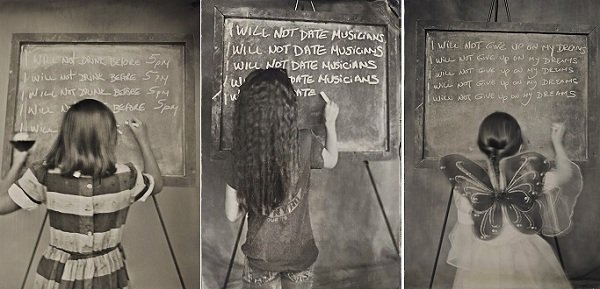 I WILL NOT DRINK BEFORE 5PM
I WILL NOT DRINK BEFORE 5PM
I WILL NOT DRINK BEFORE 5PM
I WILL NOT DRINK BEFORE 5PM
I WILL
I WILL NOT DATE MUSICIANS
I WILL NOT DATE MUSICIANS
I WILL NOT DATE MUSICIANS
I WILL NOT DATE MUSICIANS
I WILL DATE
I WILL NOT GIVE UP ON MY DREAMS
I WILL NOT GIVE UP ON MY DREAMS
I WILL NOT GIVE UP ON MY DREAMS
I WILL NOT GIVE UP ON MY DREAMS
I WILL NOT GIVE UP ON MY DREAMS